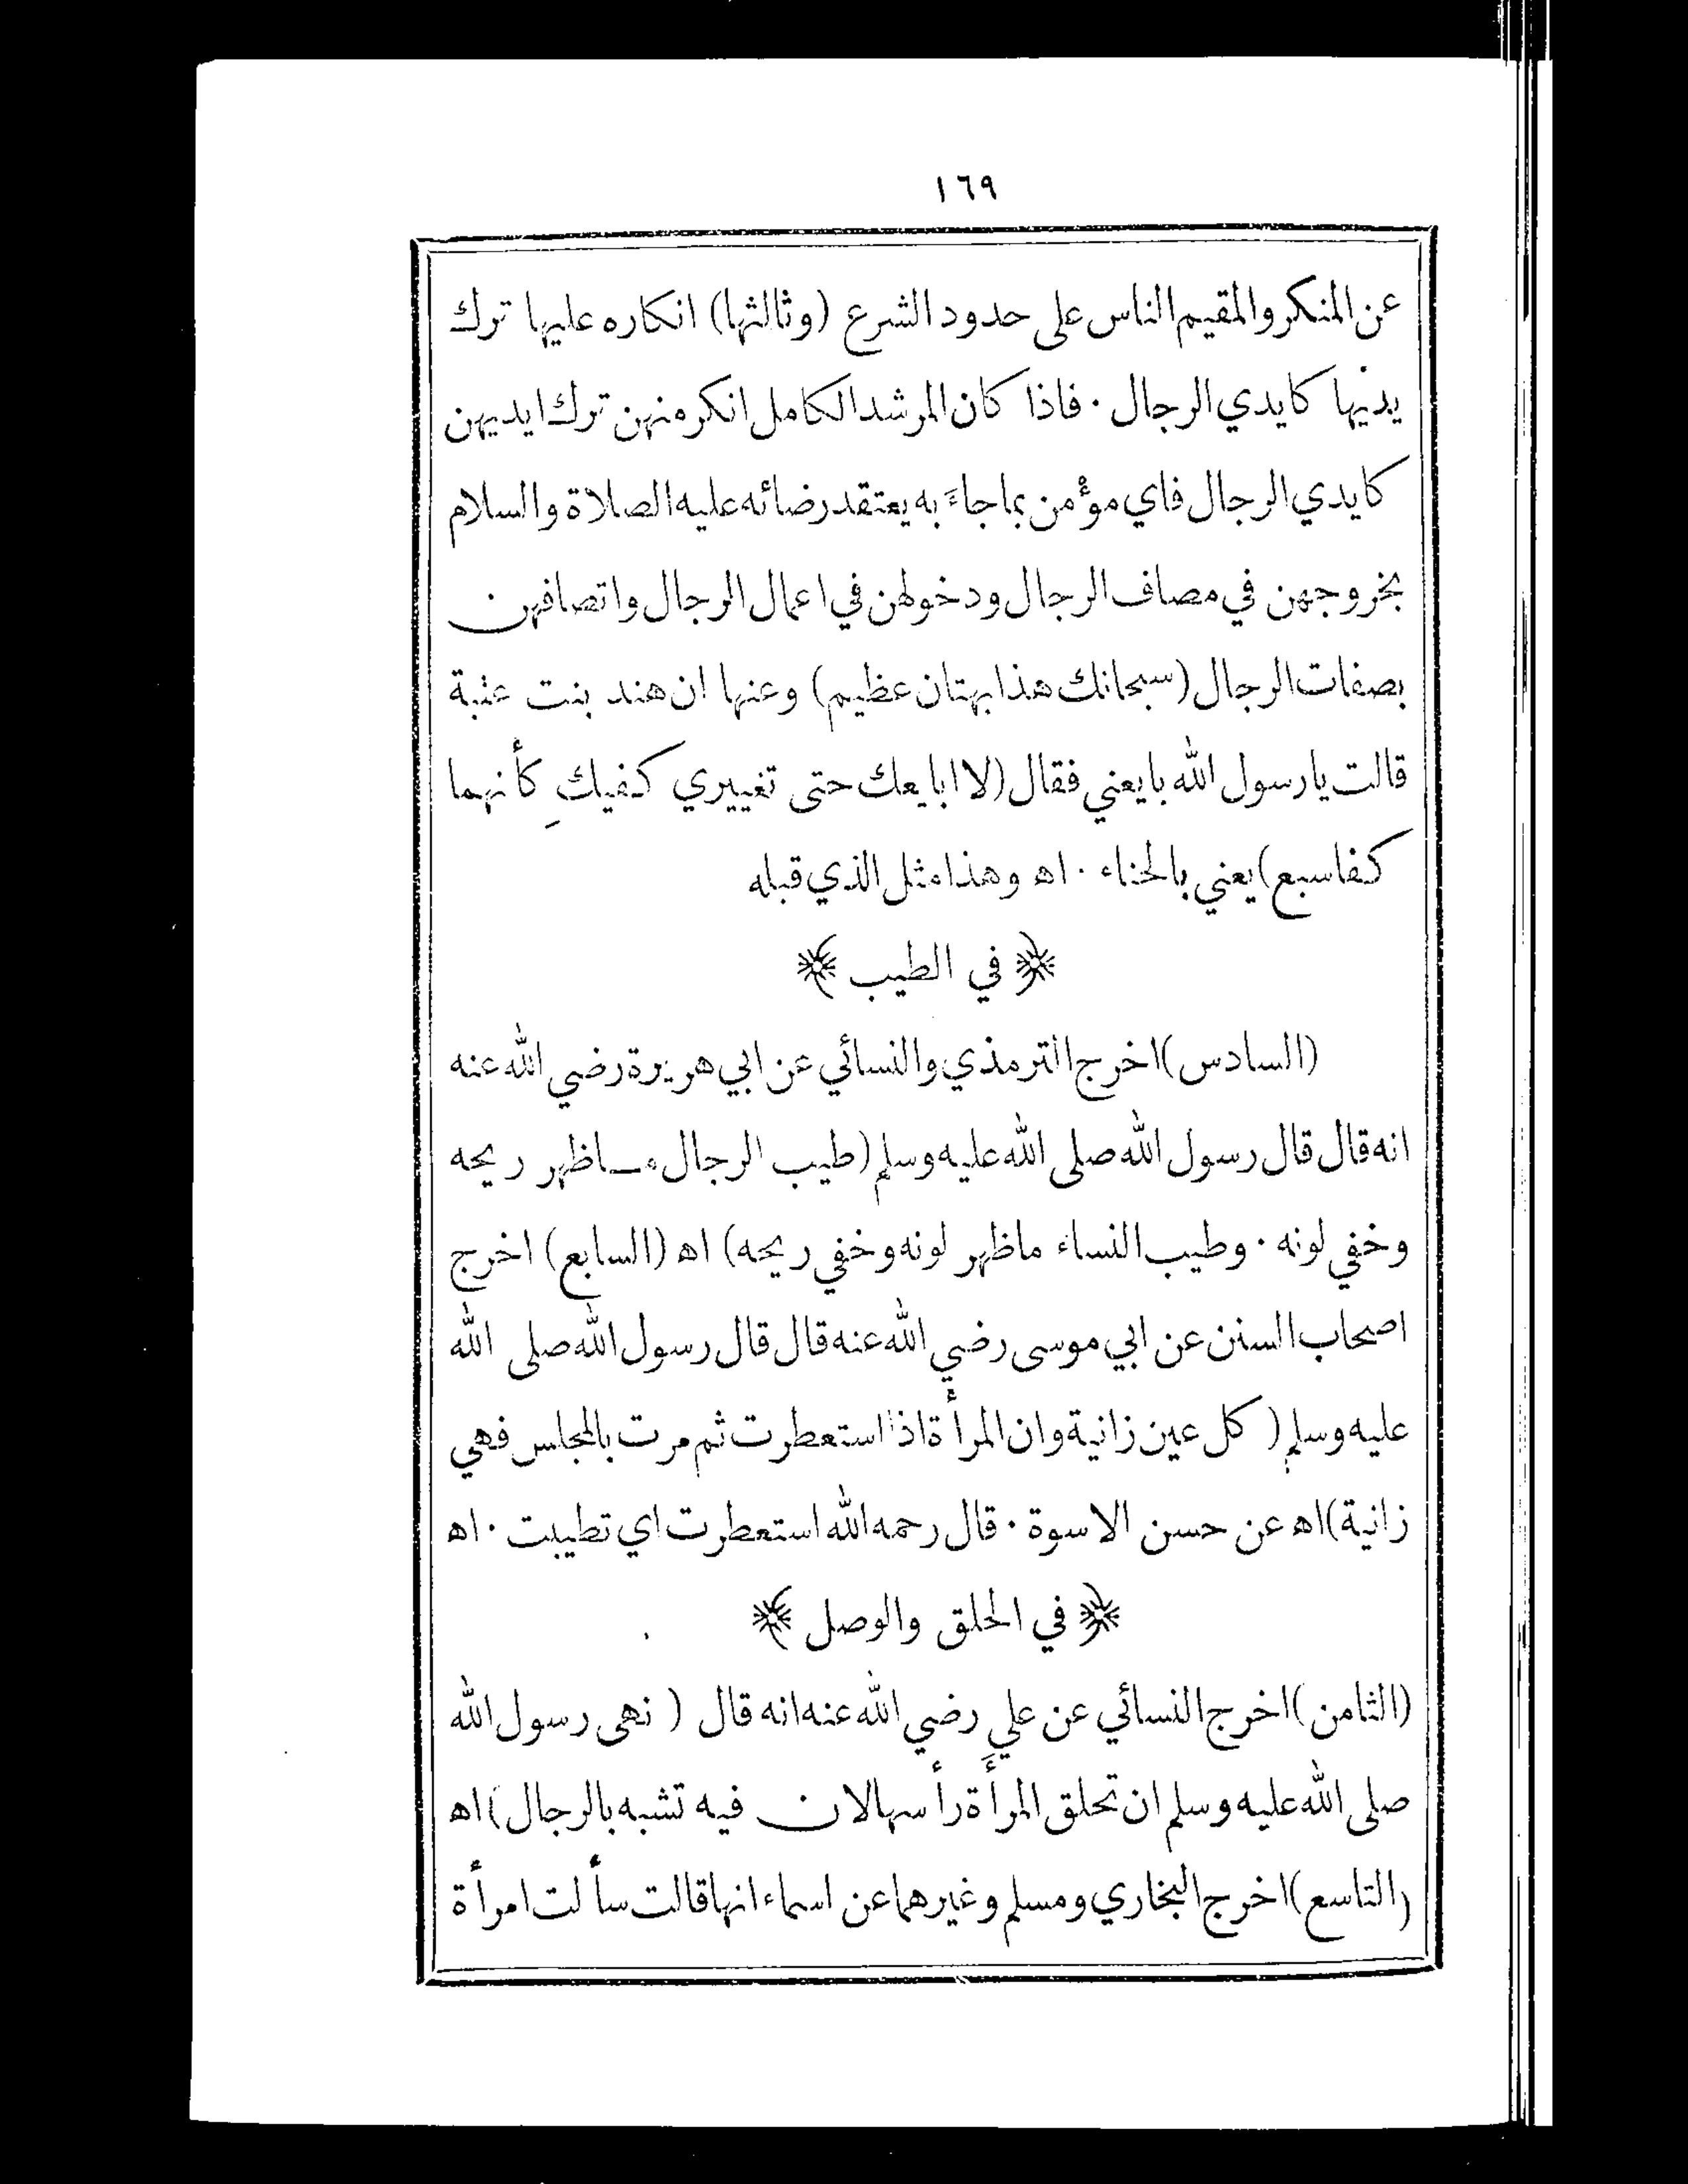 ١٦٩
عن المنكر والمقيم الناس على حدود الشرع (وثالثها) انكاره عليها ترك
يديها كايدي الرجال ٠ فاذا كان المرشد الكامل انكر منهن ترك ايديهن
كايدي الرجال فاي مؤمن بما جاءَ به يعتقد رضائه عليه الصلاة والسلام
بخروجهن في مصاف الرجال ودخولهن في اعمال الرجال واتصافهن
بصفات الرجال (سبحانك هذا بهتان عظيم) وعنها ان هند بنت عتبة
قالت يا رسول الله بايعني فقال (لا ابايعك حتى تغييري كفيكِ كأنهما
كفا سبع) يعني بالحناء ٠ اه وهذا مثل الذي قبله
﴿ في الطيب ﴾
(السادس) اخرج الترمذي والنسائي عن ابي هريرة رضي الله عنه
انه قال قال رسول الله صلى الله عليه وسلم (طيب الرجال مـا ظهر ريحه
وخفي لونه ٠ وطيب النساء ما ظهر لونه وخفي ريحه) اه (السابع) اخرج
اصحاب السنن عن ابي موسى رضي الله عنه قال قال رسول الله صلى الله
عليه وسلم (كل عين زانية وان المرأة اذا استعطرت ثم مرت بالمجلس فهي
زانية) اه عن حسن الاسوة ٠ قال رحمه الله استعطرت اي تطيبت ٠ اه
﴿ في الحلق والوصل ﴾
(الثامن) اخرج النسائي عن علي رضي الله عنه انه قال ( نهى رسول الله
صلى الله عليه وسلم ان تحلق المرأَة رأسها لان فيه تشبه بالرجال) اه
(التاسع) اخرج البخاري ومسلم وغيرهما عن اسماء انها قالت سألت امرأة